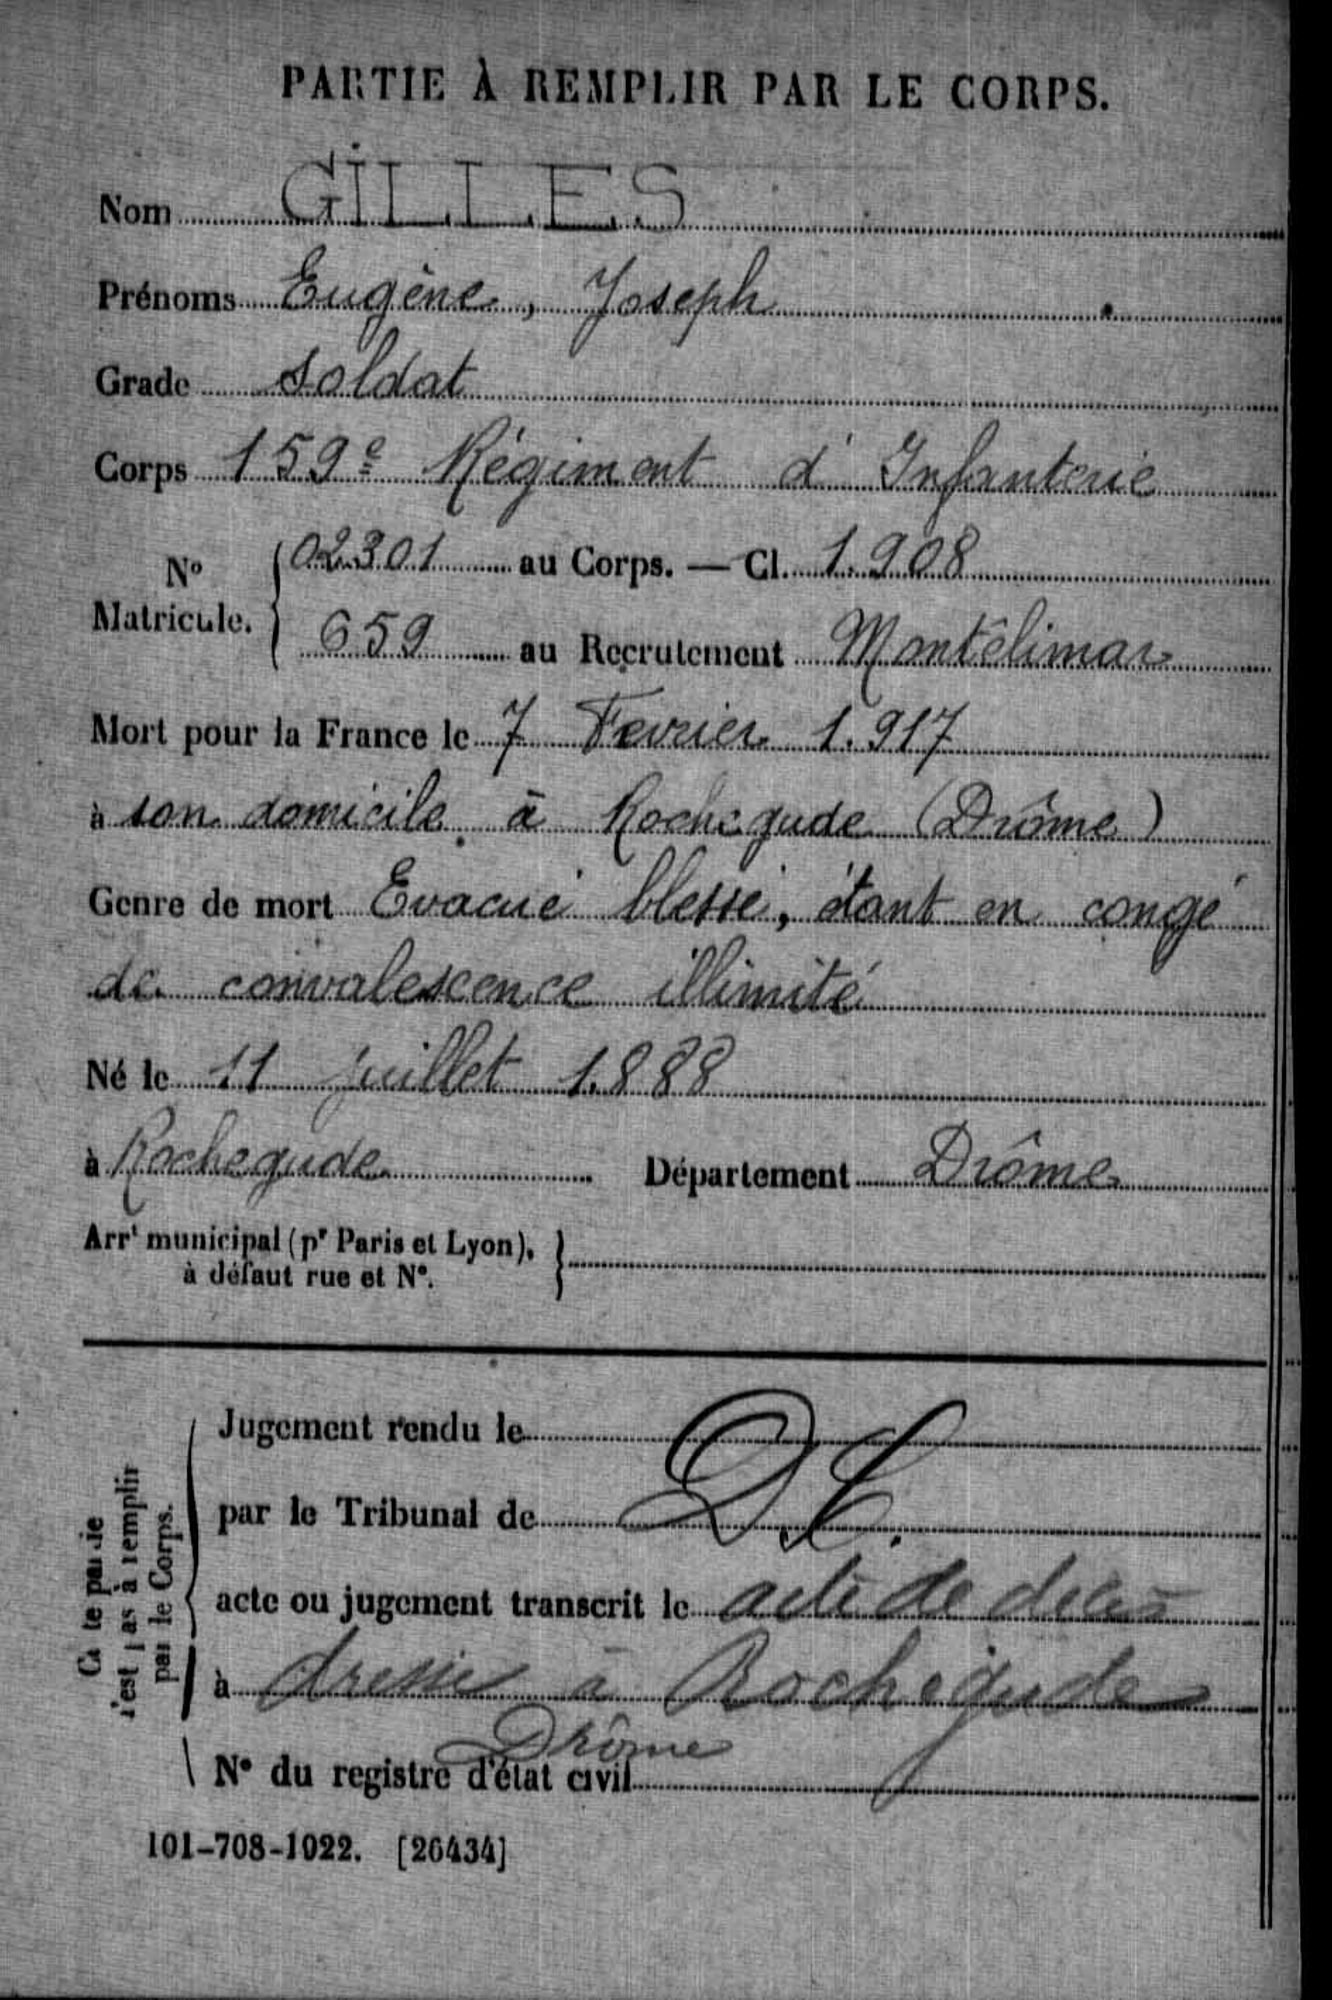 PARTIE À REMPLIR PAR LE CORPS.
Nom GILLES
Prénoms Eugène, Joseph
Grade Soldat
Corps 159e Régiment d'Infanterie
No Matricule. 02301 au Corps. — Cl. 1.908
659 au Recrutement Montélimar
Mort pour la France le 7 Fevrier 1.917
à son domicile à Rochegude (Drôme)
Genre de mort Evacué blessé, étant en congé
de convalescence illimité
Né le 11 juillet 1.888
à Rochegude Département Drôme
Arrt municipal (pr Paris et Lyon),
à défaut rue et N°.
Cette partie
n'est pas à remplir
par le Corps.
Jugement rendu le
par le Tribunal de
acte ou jugement transcrit le acte de décès
à dressé à Rochegude
Drôme
N° du registre d'état civil
101-708-1922. [26434]